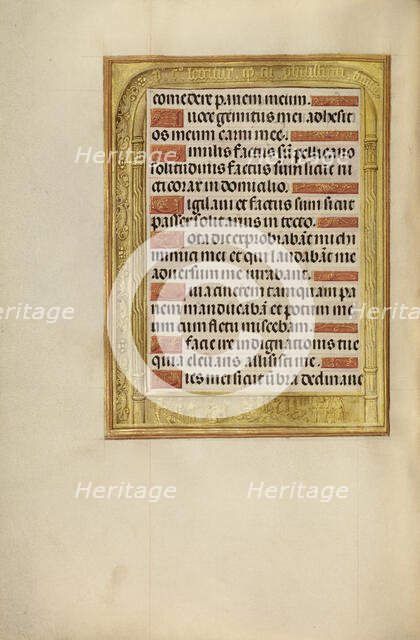 comedere panem meum.
A voce gemitus mei adhesit
os meum carni mee.
Similis factus sũ pellicano
solitudinis factus sum sicut ni
cticorax in domicilio.
Vigilavi et factus sum sicut
passer solitarius in tecto.
Tota die exprobrabãt michi
inimici mei et qui laudabãt me
adversum me iurabant.
Quia cinerem tamquam pa
nem manducabã et potum me
um cum fletu miscebam.
A facie ire indignationis tue
quia elevans allisisti me.
Dies mei sicut ũbra declinave
Heritage
Heritage
Heritage
Heritage
Heritage
Heritage